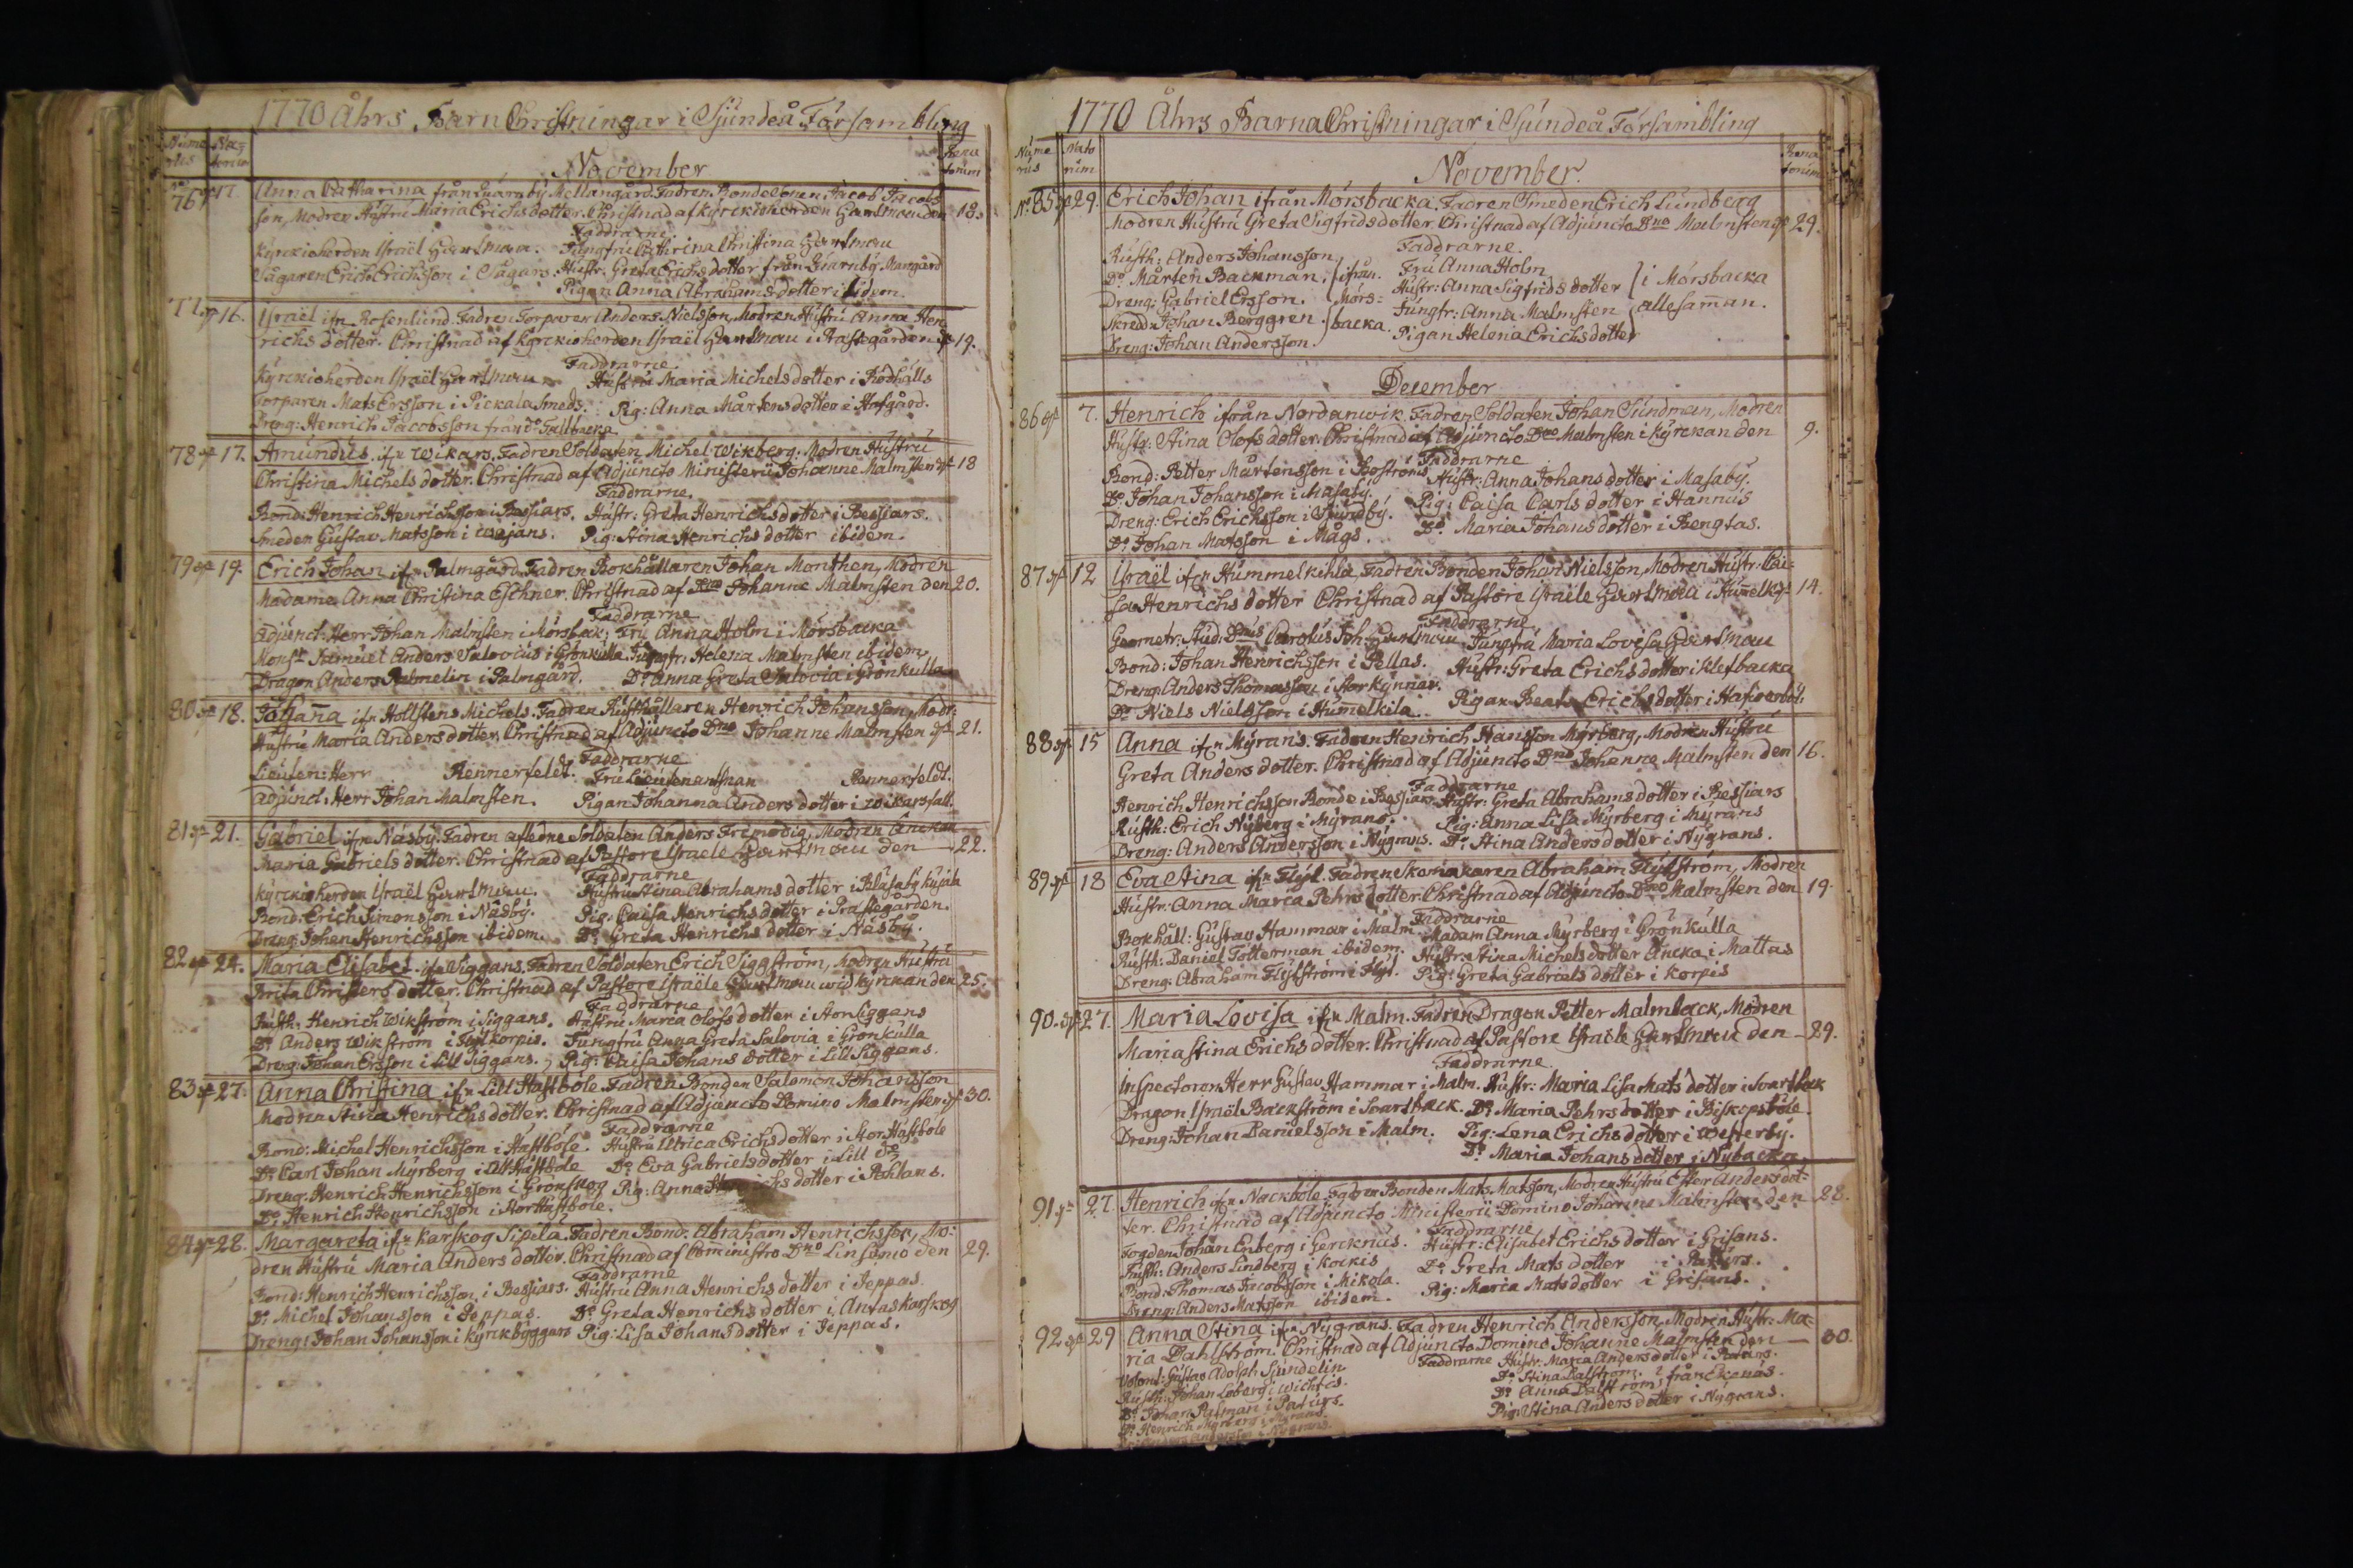 1770 Åhrs Barn Christningar i Sjúndeå Försambling
Núme rús
Na= torum
November
Rena torum
No 76 17. Anna Catharina från Qvarnbÿ Mellangård. Fadren Bondesonen Jacob Jacobs
son, Modren Hústrú Maria Erichs dotter. Christnad af Kÿrckioherden Gartman den 18.
Faddrarne.
Kÿrckioherden Israël Gartman. Júngfrú Cathrina Christina Gartman
Sågaren Erich Erichsson i Sågars. Hústr: Greta Erichs dotter från Qvarnbÿ
Pigan Anna Abrahams dotter ibidem.
77 16. Israël ifn Rosenlúnd. Fadren Torparen Anders Nielsson, Modren Hústrú Anna Hen
richs dotter. Christnad af Kÿrckioherden Israël Gartman i Prästegården 19.
Faddrarne
Kÿrckioherden Israël Gartman Hústrú Maria Michels dotter i Rödhälls
Torparen Mats Ersson i Pickala Smeds. Pig: Anna Mårtens dotter i Hofgård.
Dreng: Henrich Jacobsson från Do Tallbacka
78 17. Amúndús ifn Wikars. Fadren Soldaten Michel Wikberg. Modren Hústrú
Christina Michels dotter. Christnad af Adjúncto Ministerii Johanne Malmsten 18
Faddrarne.
Bond: Henrich Henrichsson i Bessiars. Hústr: Greta Henrichs dotter i Bessiars.
Smeden Gústav Matsson i Wejans. Pig: Stina Henrichs dotter ibidem.
79 19. Erich Johan ifn Palmgård. Fadren Bokhållaren Johan Monthen, Modren
Madame Anna Christina Eschner. Christnad af Dno Johanne Malmsten den 20.
Faddrarne
Adjúnct: Herr Johan Malmsten i Mörsback: Frú Anna Holm i Mörsbacka
Monsr Samúel Anders Salovius i Grönkulla Jungfr: Helena Malmsten ibidem
Dragon Anders Palmelin i Palmgård. Do Anna Greta Salovia i Grönkulla
80 18. Johanna ifn Hollstens Michels. Fadren Rústhållaren Henrich Johansson, Modr:
Hústrú Maria Anders dotter. Christnad af Adjúncto Dno Johanne Malmsten 21.
Faddrarne
Lieuten: Herr Rennerfeldt. Frú Lieutenantskan Rennerfeldt.
Adjúnct: Herr Johan Malmsten. Pigan Johanna Anders dotter i Wikars fall.
81 21. Gabriel ifn Näsbÿ. Fadren afledne Soldaten Anders Frimodig, Modren Änckan
Maria Gabriels dotter. Christnad af Pastore Israele Gartman den 22.
Faddrarne
Kÿrckioherden Israël Gartman. Hústrú Stina Abrahams dotter i
Bond: Erich Simonsson i Näsbÿ. Pig: Caisa Henrichs dotter i Prästegården.
Dreng: Johan Henrichsson ibidem. Do Greta Henrichs dotter i Näsbÿ.
82 24. Maria Elisabet ifn Siggans. Fadren Soldaten Erich Siggström, Modren Hústrú
Brita Christers dotter. Christnad af Pastore Israële Gartman wid Kÿrckan den 25.
Faddrarne
Rústh: Henrich Wikström i Siggans. Hústrú Maria Olofs dotter i Stor Siggans
Do Anders Wikström i Korpis. Jungfrú Anna Greta Salovia i Grönkulla
Dreng: Johan Ersson i Lill Siggans. Pig: Caisa Johans dotter i Lill Siggans.
83 27. Anna Christina ifn Lill Hästböle. Fadren Bonden Salomon Johansson
Modren Stina Henrichs dotter. Christnad af Adjúncto Domino Malmsten 30.
Faddrarne
Bond: Michel Henrichsson i Hästböle. Hústrú Ulrica Erichs dotter i Stor Hästböle
Do Carl Johan Mÿrberg i Lill Hästböle Do Eva Gabriels dotter i Lill Do
Dreng: Henrich Henrichsson i Grönskog Pig: Anna Henrichs dotter i
Do Henrich Henrichsson i Stor Hästböle.
84 28. Margareta ifn Karskog Sipilä. Fadren Bond: Abraham Henrichsson, Mo:
dren Hústrú Maria Anders dotter. Christnad af Comministro Dno Linsenio den 29.
Faddrarne
Bond: Henrich Henrichsson i Bessiars. Hústrú Anna Henrichs dotter i Jeppas.
Do Michel Johansson i Jeppas. Do Greta Henrichs dotter i Antas Karskog
Dreng: Johan Johansson i Kÿrckbÿggars Pig: Lisa Johans dotter i Jeppas.
1770 Åhrs Barna Christningar i Sjúndeå Församling
Núme rús
Nato rúm
November.
Rena torúm
No 85 29. Erich Johan ifrån Mörsbacka. Fadren Smeden Erich Lúndberg
Modren Hústrú Greta Sigfrids dotter. Christnad af Adjúncto Dno Malmsten 29.
Faddrarne.
Rústh: Anders Johansson Frú Anna Holm
Do Mårten Backman. ifrån Hústr: Anna Sigfrids dotter i Mörsbacka
Dreng: Gabriel Ersson. Mörs= Júngfr: Anna Malmsten allesamman.
Skredd: Johan Berggren. backa. Pigan Helena Erichs dotter
Dreng: Johan Andersson.
December
86 7. Henrich ifrån Nordanwik. Fadren Soldaten Johan Súndman, Modren
Hústr: Stina Olofs dotter. Christnad af Adjúncto Dno Malmsten i Kÿrckan den 9.
Faddrarne
Bond: Petter Mårtensson i Boströms Hústr: Anna Johans dotter i Masabÿ.
Do Johan Johansson i Masabÿ. Pig: Caisa Carls dotter i Hannús
Dreng: Erich Erichsson i Sjúndbÿ. Do Maria Johans dotter i Bengtas.
Do Johan Matsson i Mågs.
87 12 Israël ifrn Húmmelkihla, Fadren Bonden Johan Nielsson, Modren Hústr: Cai:
sa Henrichs dotter Christnad af Pastore Israele Gartman i Húmelk: 14.
Faddrarne
Geometr: Stúd: Dnús Carolús Joh: Gartman Júngfrú Maria Lovisa Gartman
Bond: Johan Henrichsson i Pellas. Hústr: Greta Erichs dotter i Klefbacka
Dreng: Anders Thomasson i Storkÿnnar. Pigan Beata Erichs dotter i
Do Niels Nielsson i Húmelkila.
88 15 Anna ifn Mÿrans. Fadren Henrich Hansson Mÿrberg, Modren Hústrú
Greta Anders dotter. Christnad af Adjúncto Dno Johanne Malmsten den 16.
Faddrarne
Henrich Henrichsson Bonde i Bessiars Hústr: Greta Abrahams dotter i Bessiars
Rústh: Erich Nÿberg i Mÿrans. Pig: Anna Lisa Mÿrberg i Mÿrans
Dreng: Anders Andersson i Nÿgrans. Do Stina Anders dotter i Nÿgrans.
89 18 Eva Stina ifn Flÿt. Fadren Skomakaren Abraham Flÿtström, Modren
Hústr: Anna Maria Pehrs dotter. Christnad af Adjúncto Dno Malmsten den 19.
Faddrarne
Bokhåll: Gústav Hammar i Malm. Madam Anna Mÿrberg i Grönkúlla
Rústh: Daniel Totterman ibidem. Hústr: Stina Michels dotter Äncka i Mattas
Dreng: Abraham Flÿtström i Flÿt. Pig: Greta Gabriels dotter i Korpis
90. 27. Maria Lovisa ifn Malm. Fadren Dragon Petter Malmback, Modren
Maria Stina Erichs dotter. Christnad af Pastore Israele Gartman den 29.
Faddrarne.
Inspectoren Herr Gústav Hammar i Malm. Hústr: Maria Lisa Mats dotter i Svartback
Dragon Israël Backström i Svartback. Do Maria Pehrs dotter i Biskopsböle.
Dreng: Johan Danielsson i Malm. Pig: Lena Erichs dotter i Westerbÿ.
Do Maria Johans dotter i Nÿbacka.
91 27. Henrich ifn Nackböle. Fadren Bonden Mats Matsson, Modren Hústrú Ester Anders dot=
ter. Christnad af Adjúncto Ministerii Domino Johanne Malmsten den 28.
Faddrarne
Fogden Johan Enberg i Gercknäs. Hústr: Elisabet Erichs dotter i Grisans.
Rústh: Anders Lindberg i Kockis Do Greta Mats dotter i
Bond: Thomas Jacobsson i Mikola. Pig: Maria Mats dotter i Grisans.
Dreng: Anders Matsson ibidem.
92 29 Anna Stina ifn Nÿgrans. Fadren Henrich Andersson, Modren Hústr: Ma=
ria Dahlström. Christnad af Adjúncto Domino Johanne Malmsten den 30.
Faddrarne Hústr: Maria Anders dotter i
Volont: Gústav Adolph Sjúndelin Do Stina Dalström från
Rústh: Johan Löberg i Wichtis. Do Anna Dalström
Do Johan i Patúrs. Pig: Stina Anders dotter i Nÿgrans.
Do Henrich Mÿrberg i Mÿrans.
Anders Andersson i Nÿgrans.